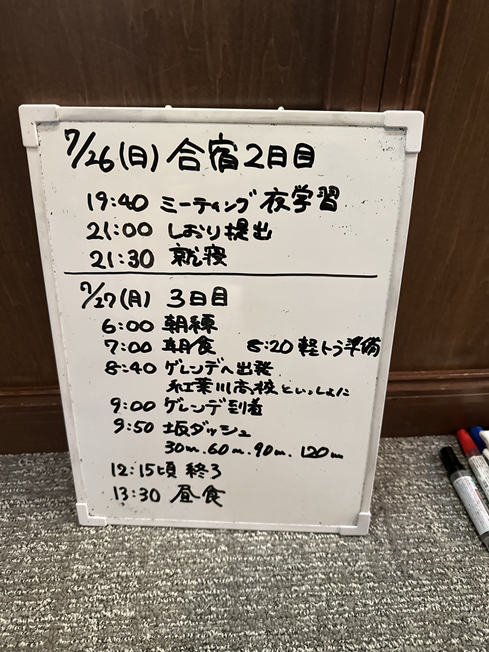 7/26(日) 合宿2日目
19:40 ミーティング 夜学習
21:00 しおり提出
21:30 就寝
7/27(月) 3日目
6:00 朝練
7:00 朝食 5:20 軽トラ準備
8:40 ゲレンデへ出発
紅葉川高校といっしょに
9:00 ゲレンデ到着
9:50 坂ダッシュ
30m.60m.90m.120m
12:15頃 終了
13:30 昼食